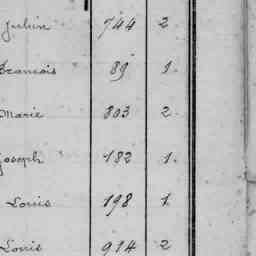 Julien 744 2
François 89 1.
Marie 803 2.
Joseph 182 1.
Louis 198 1
Louis 914 2